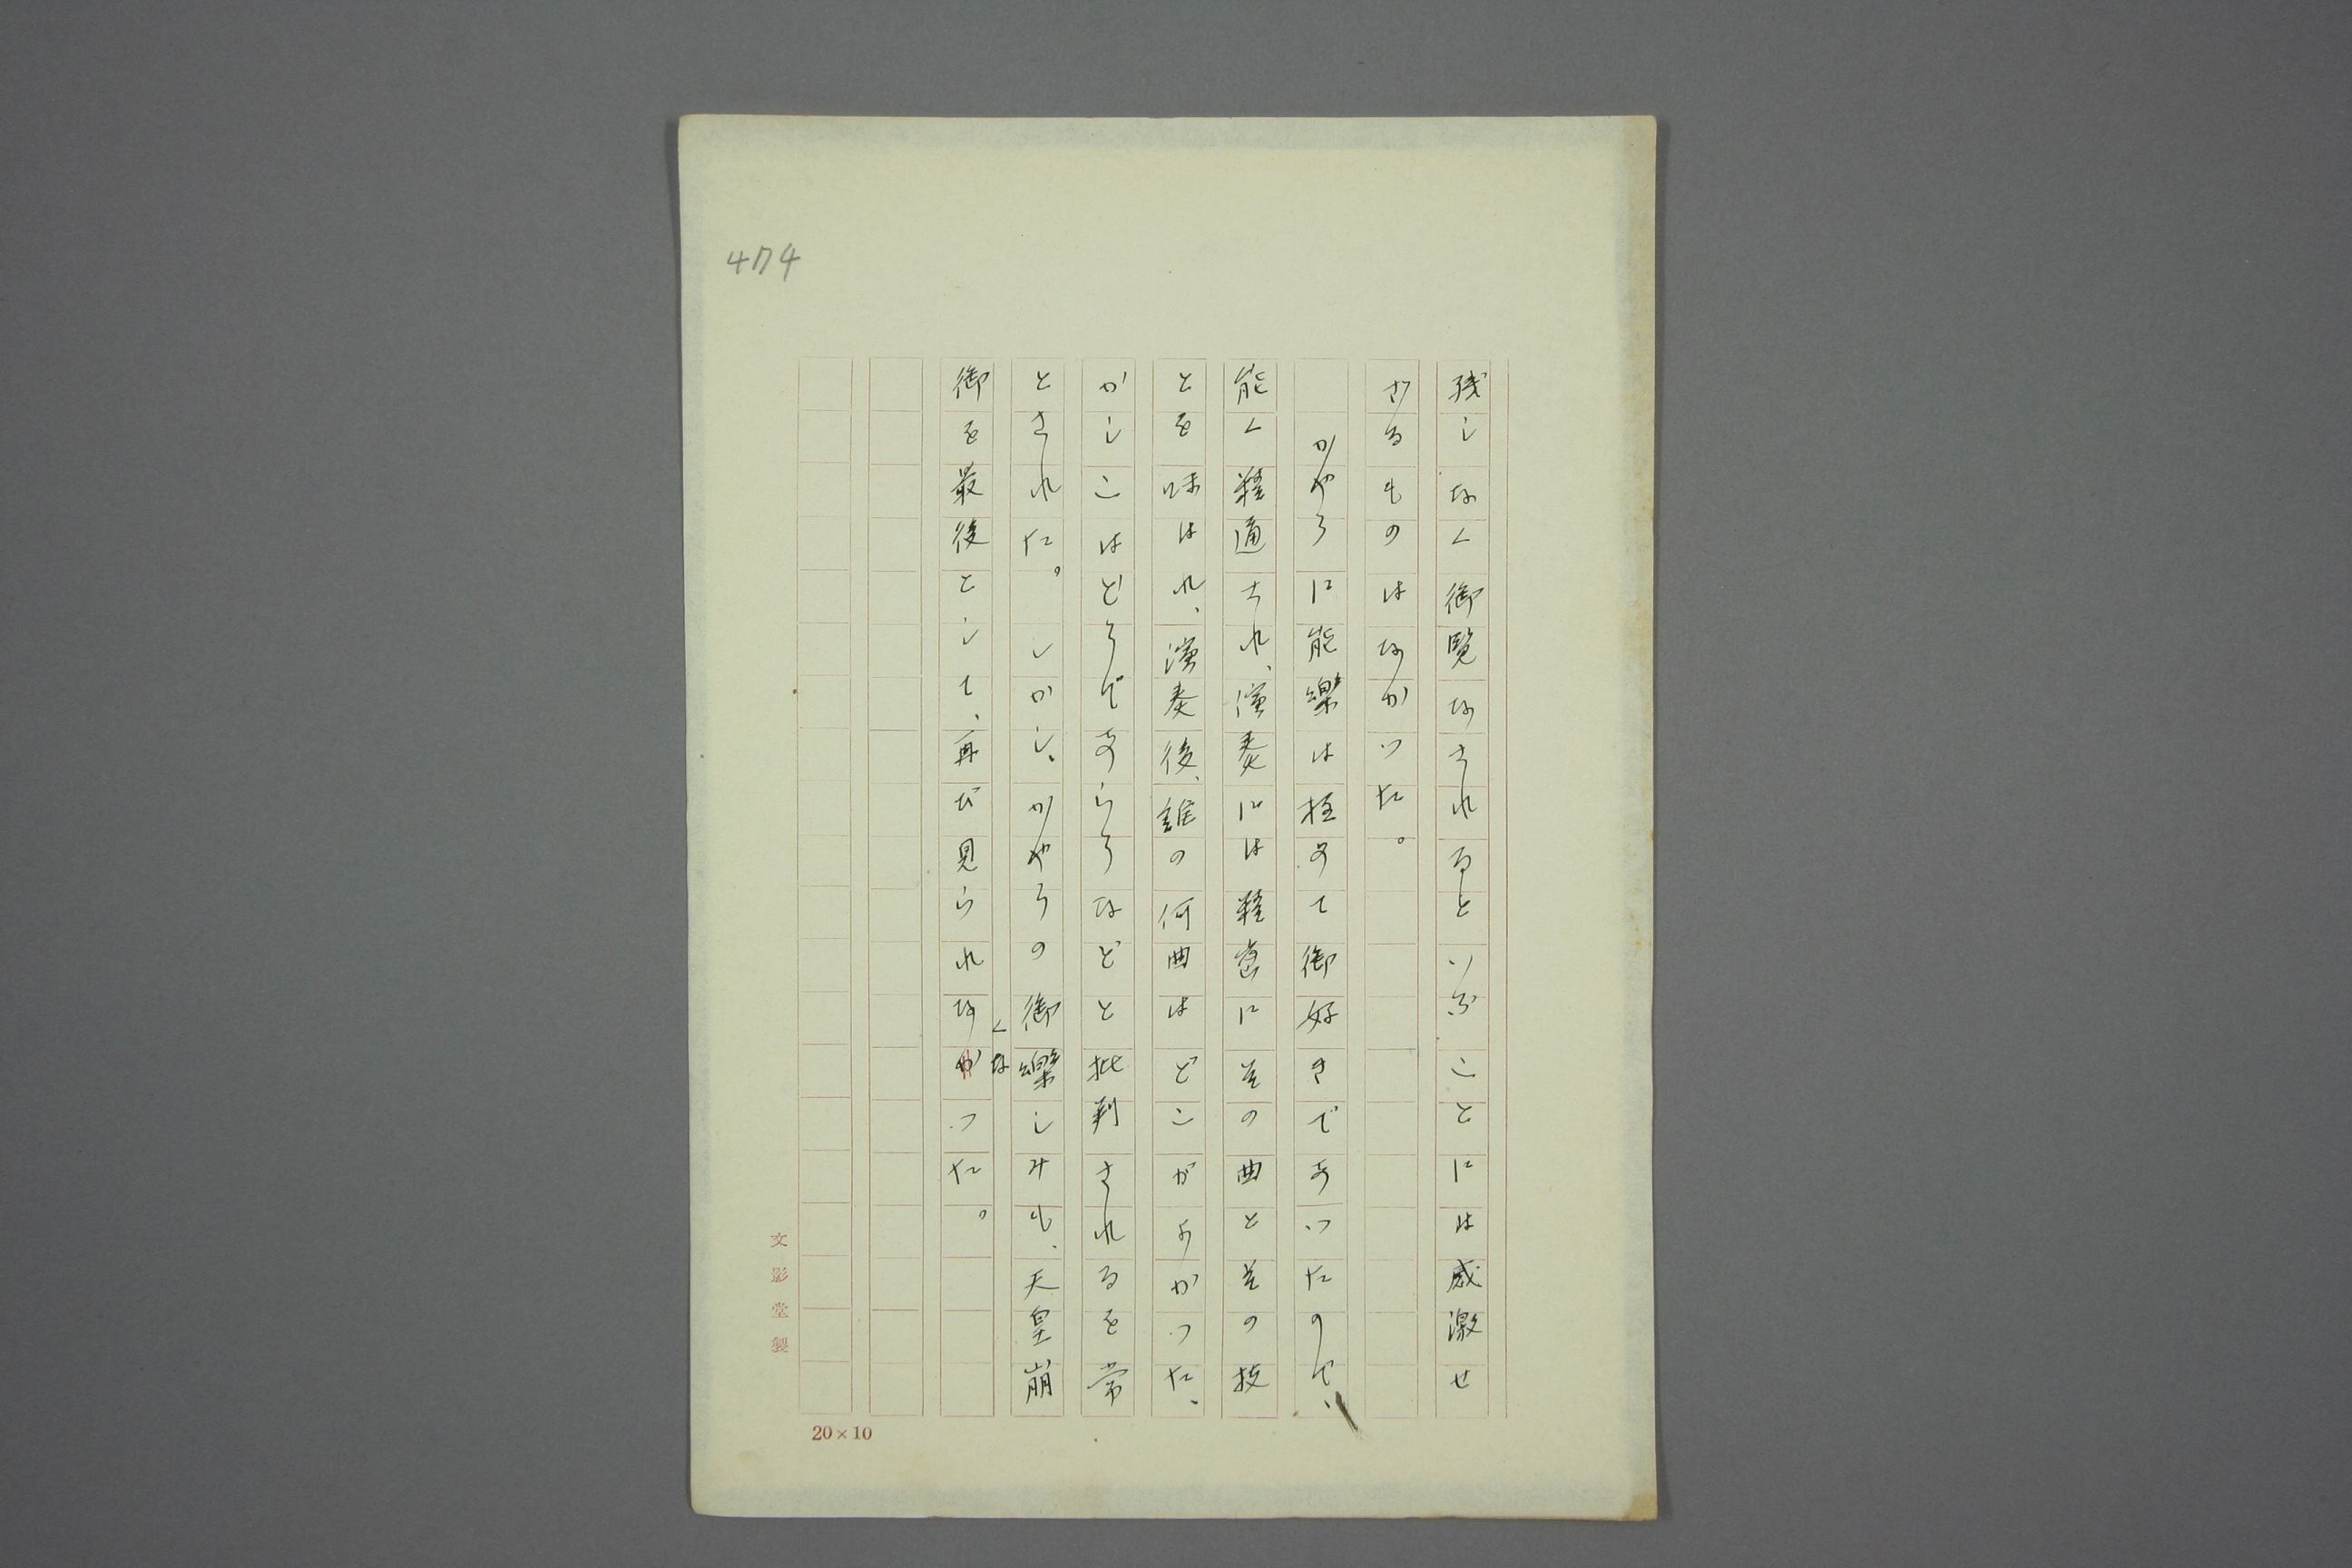 474
残しなく御覧なされるといふことには感激せ
ざるものはなかつた。
かやうに能樂は極めて御好きであつたので、
能く精通され、演奏には精密にその曲とその技
とを味はれ、演奏後、誰の何曲はどこがよかつた、
かしこはどうであらうなどと批判されるを常
とされた。しかし、かやうの御樂しみも、天皇崩
御を最後として、再び見られなくなつた。
文影堂製
20×10